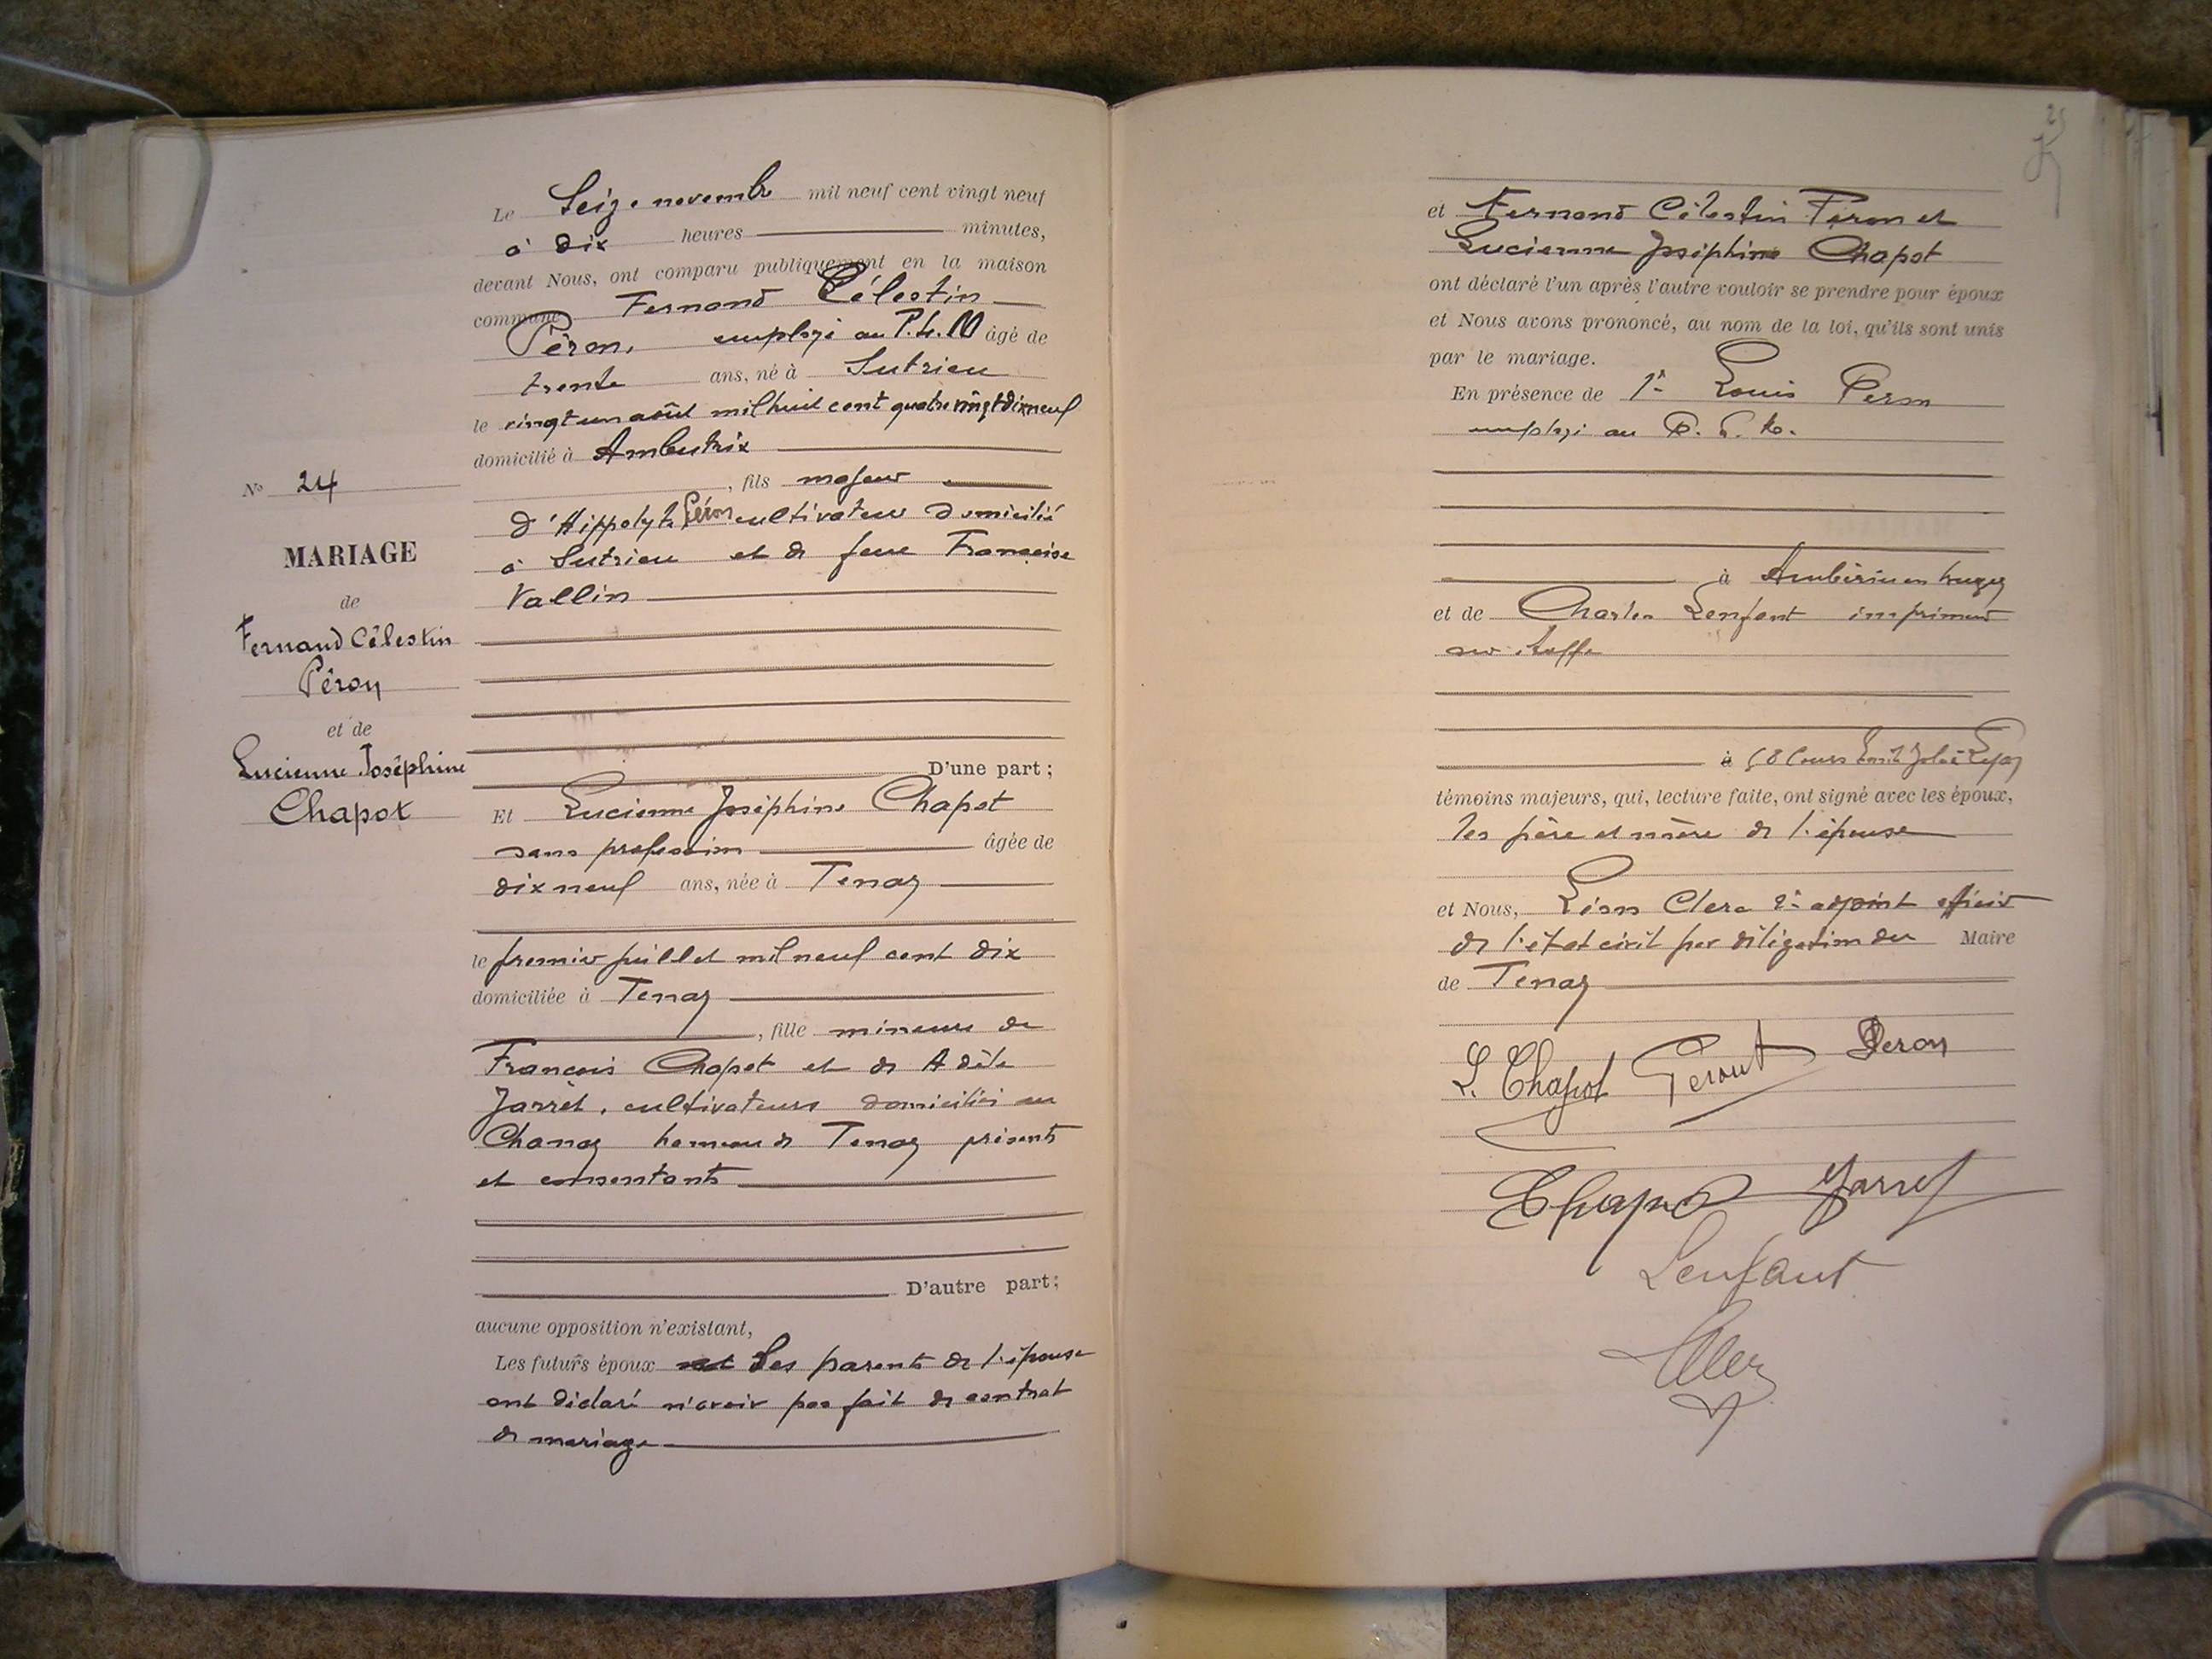 Le Seize novembre mil neuf cent vingt neuf
à dix heures minutes,
devant Nous, ont comparu publiquement en la maison
commune Fernand Célestin
Péron, employé au P.L.M âgé de
trente ans, né à Sutrieu
le vingt un août mil huit cent quatre vingt dix neuf
domicilié à Ambutrix
, fils majeur
d'Hippolyte Péron cultivateur domicilié
à Sutrieu et de feue Françoise
Vallin
D'une part ;
Et Lucienne Joséphine Chapot
sans profession âgée de
dix neuf ans, née à Tenay
le premier juillet mil neuf cent dix
domiciliée à Tenay
, fille mineure de
François Chapot et de Adèle
Jarret, cultivateurs domiciliés au
Chanay hameau de Tenay présents
et consentants
D'autre part ;
aucune opposition n'existant,
Les futurs époux et les parents de l'épouse
ont déclaré n'avoir pas fait de contrat
de mariage
No 24
MARIAGE
de
Fernand Célestin
Péron
et de
Lucienne Joséphine
Chapot
25
et Fernand Célestin Péron et
Lucienne Joséphine Chapot
ont déclaré l'un après l'autre vouloir se prendre pour époux
et Nous avons prononcé, au nom de la loi, qu'ils sont unis
par le mariage.
En présence de 1° Louis Peron
employé au P. L. M.
à Ambérieu en Bugey
et de Charles Lenfant imprimeur
sur étoffe
à 58 Cours Emile Zola à Lyon
témoins majeurs, qui, lecture faite, ont signé avec les époux,
les père et mère de l'épouse
et Nous, Léon Clerc 2e adjoint officier
de l'état civil par délégation du Maire
de Tenay
L. Chapot Perout Peron
Chapot Jarret
Lenfant
Clerc